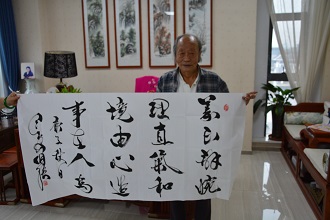 義正辭婉
理直氣和
境由心造
事在人為
庚子秋日